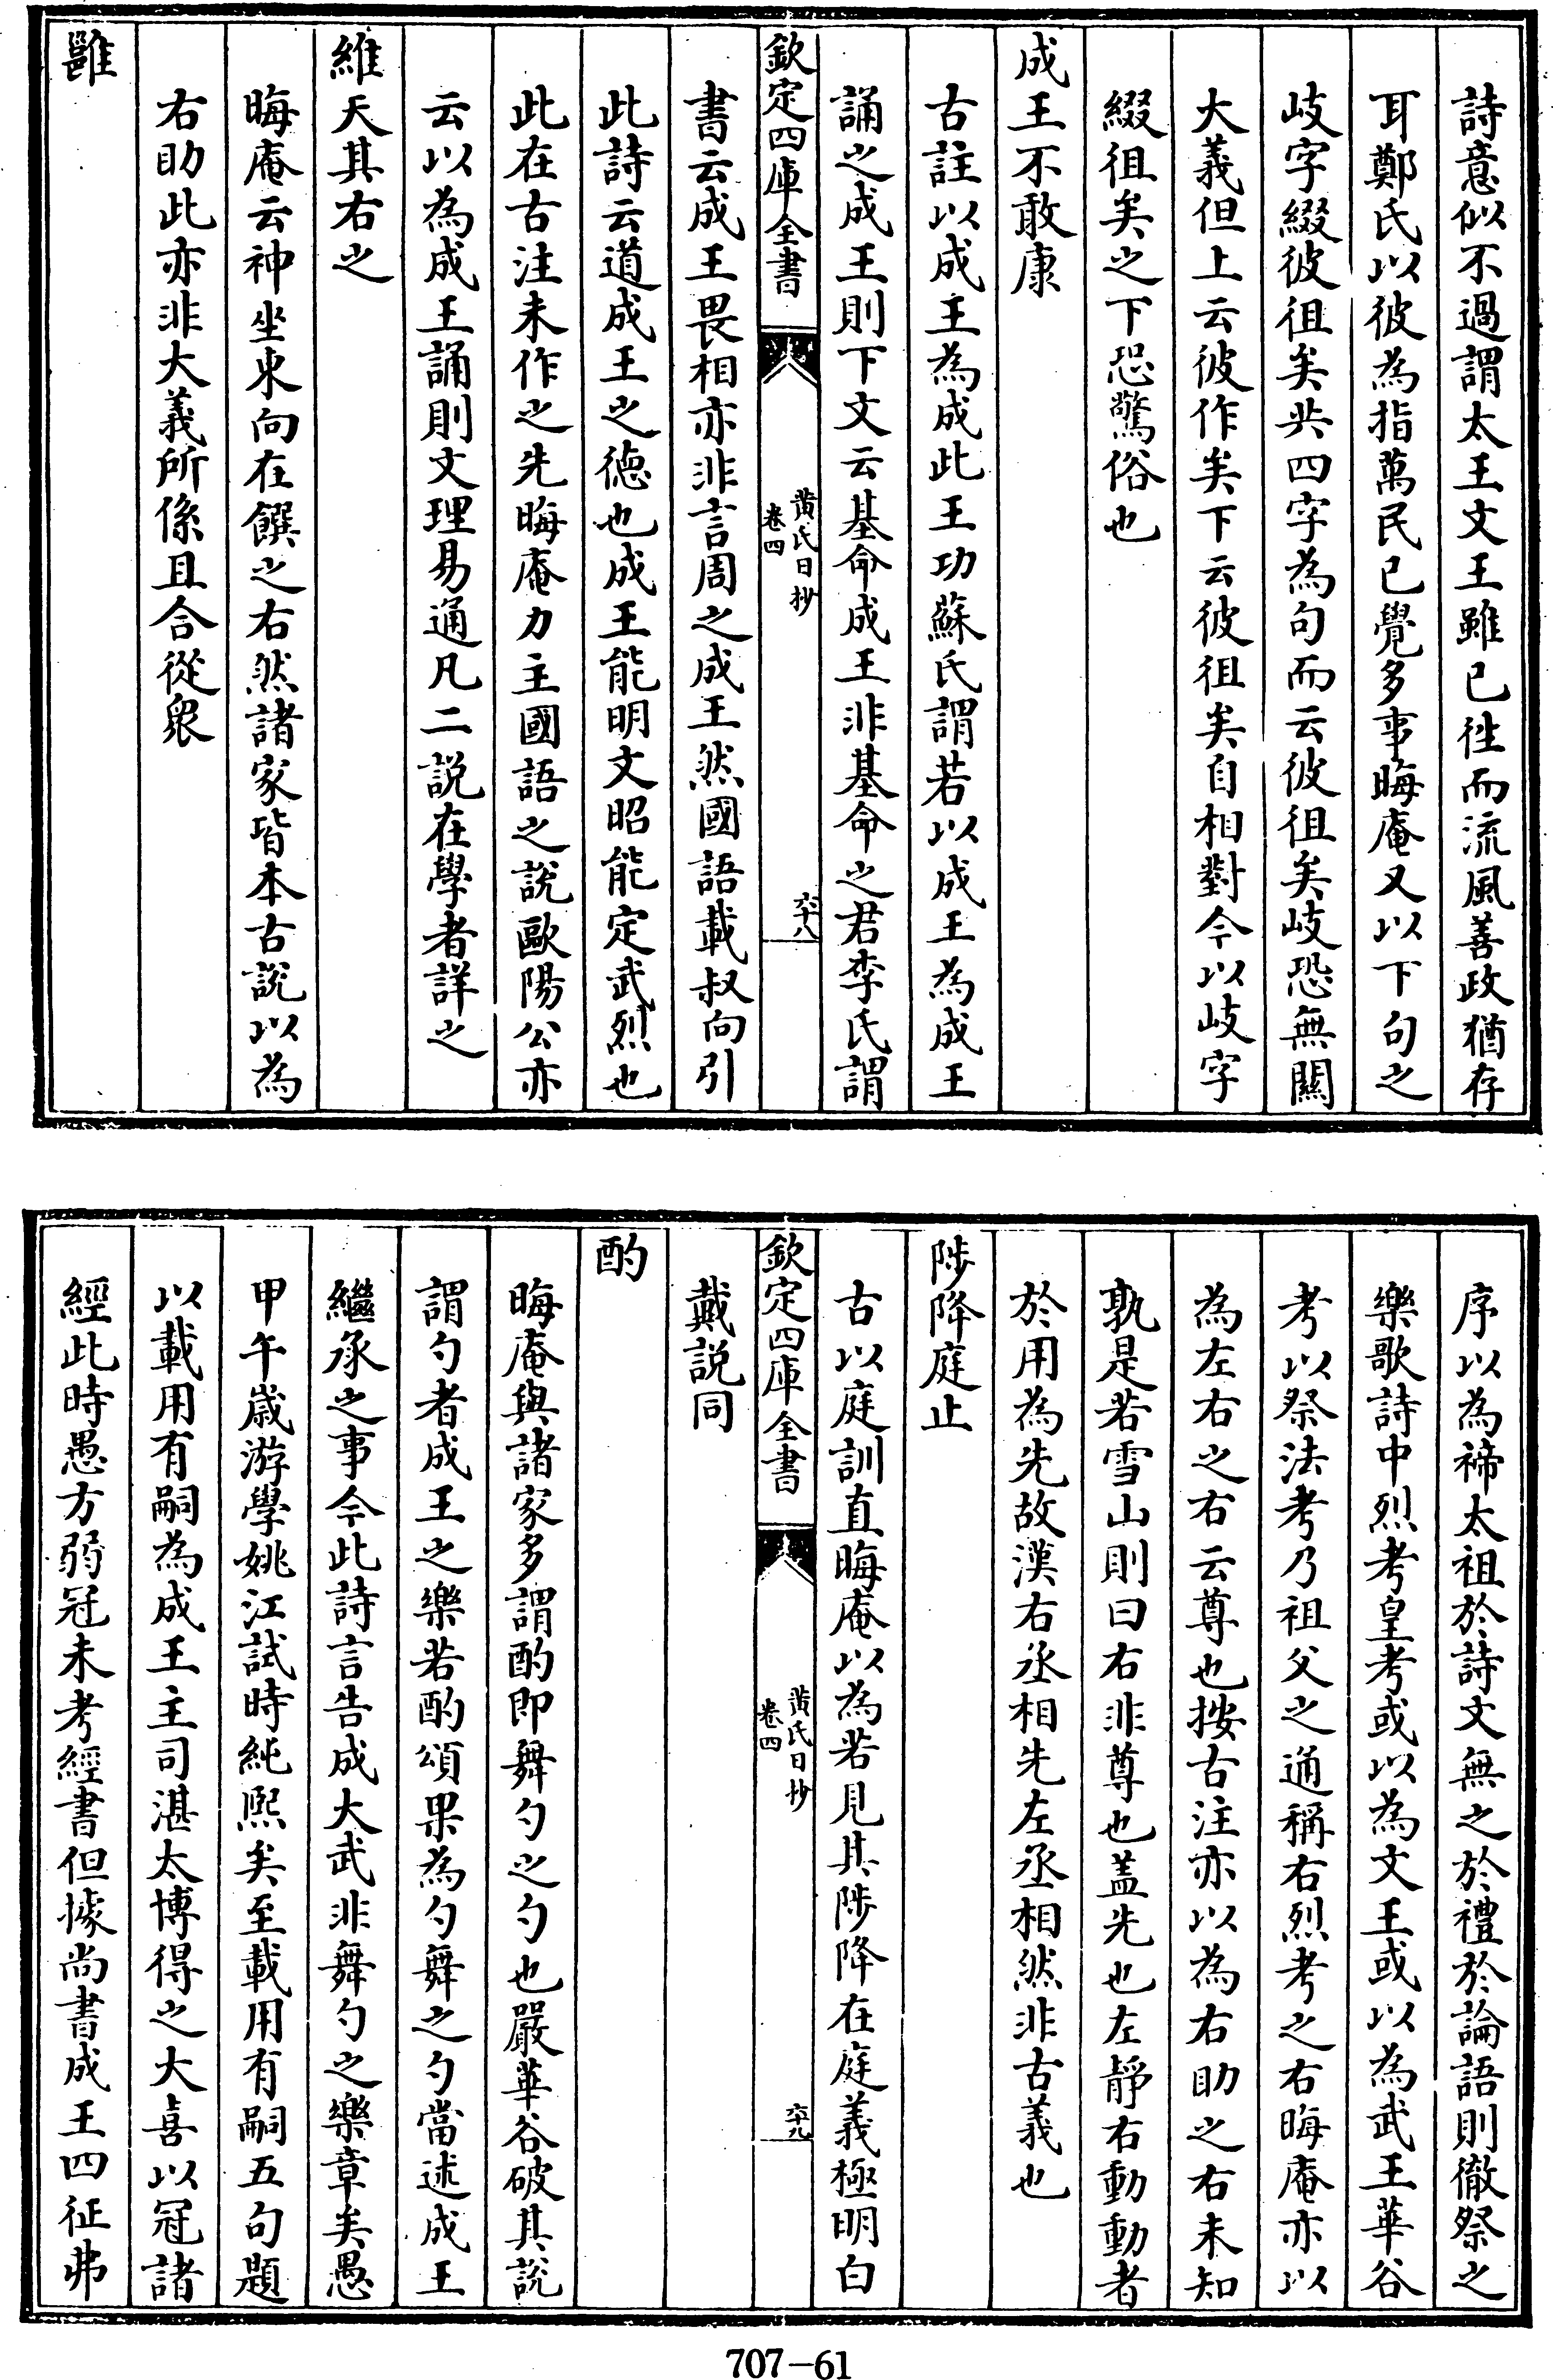 詩意似不過謂太王文王雖已徃而流風善政猶存
耳鄭氏以彼為指萬民已覺多事晦庵又以下句之
岐字綴彼徂矣共四字為句而云彼徂矣岐恐無關
大義但上云彼作矣下云彼徂矣自相對今以岐字
綴徂矣之下恐驚俗也
成王不敢康
古註以成王為成此王功蘇氏謂若以成王為成王
誦之成王則下文云基命成王非基命之君李氏謂
欽定四庫全書
黄氏日抄
卷四
六十八
書云成王畏相亦非言周之成王然國語載叔向引
此詩云道成王之德也成王能明文昭能定武烈也
此在古注未作之先晦庵力主國語之說歐陽公亦
云以為成王誦則文理易通凡二說在學者詳之
維天其右之
晦庵云神坐東向在饌之右然諸家皆本古說以為
右助此亦非大義所係且合從衆
雝
序以為禘太祖於詩文無之於禮於論語則徹祭之
樂歌詩中烈考皇考或以為文王或以為武王華谷
考以祭法考乃祖父之通稱右烈考之右晦庵亦以
為左右之右云尊也按古注亦以為右助之右未知
孰是若雪山則曰右非尊也盖先也左靜右動動者
於用為先故漢右丞相先左丞相然非古義也
陟降庭止
古以庭訓直晦庵以為若見其陟降在庭義極明白
欽定四庫全書
黄氏日抄
卷四
六十九
戴說同
酌
晦庵與諸家多謂酌即舞勺之勺也嚴華谷破其說
謂勺者成王之樂若酌頌果為勺舞之勺當述成王
繼承之事今此詩言告成大武非舞勺之樂章矣愚
甲午歳游學姚江試時純熈矣至載用有嗣五句題
以載用有嗣為成王主司湛太博得之大喜以冠諸
經此時愚方弱冠未考經書但據尚書成王四征弗
707—61